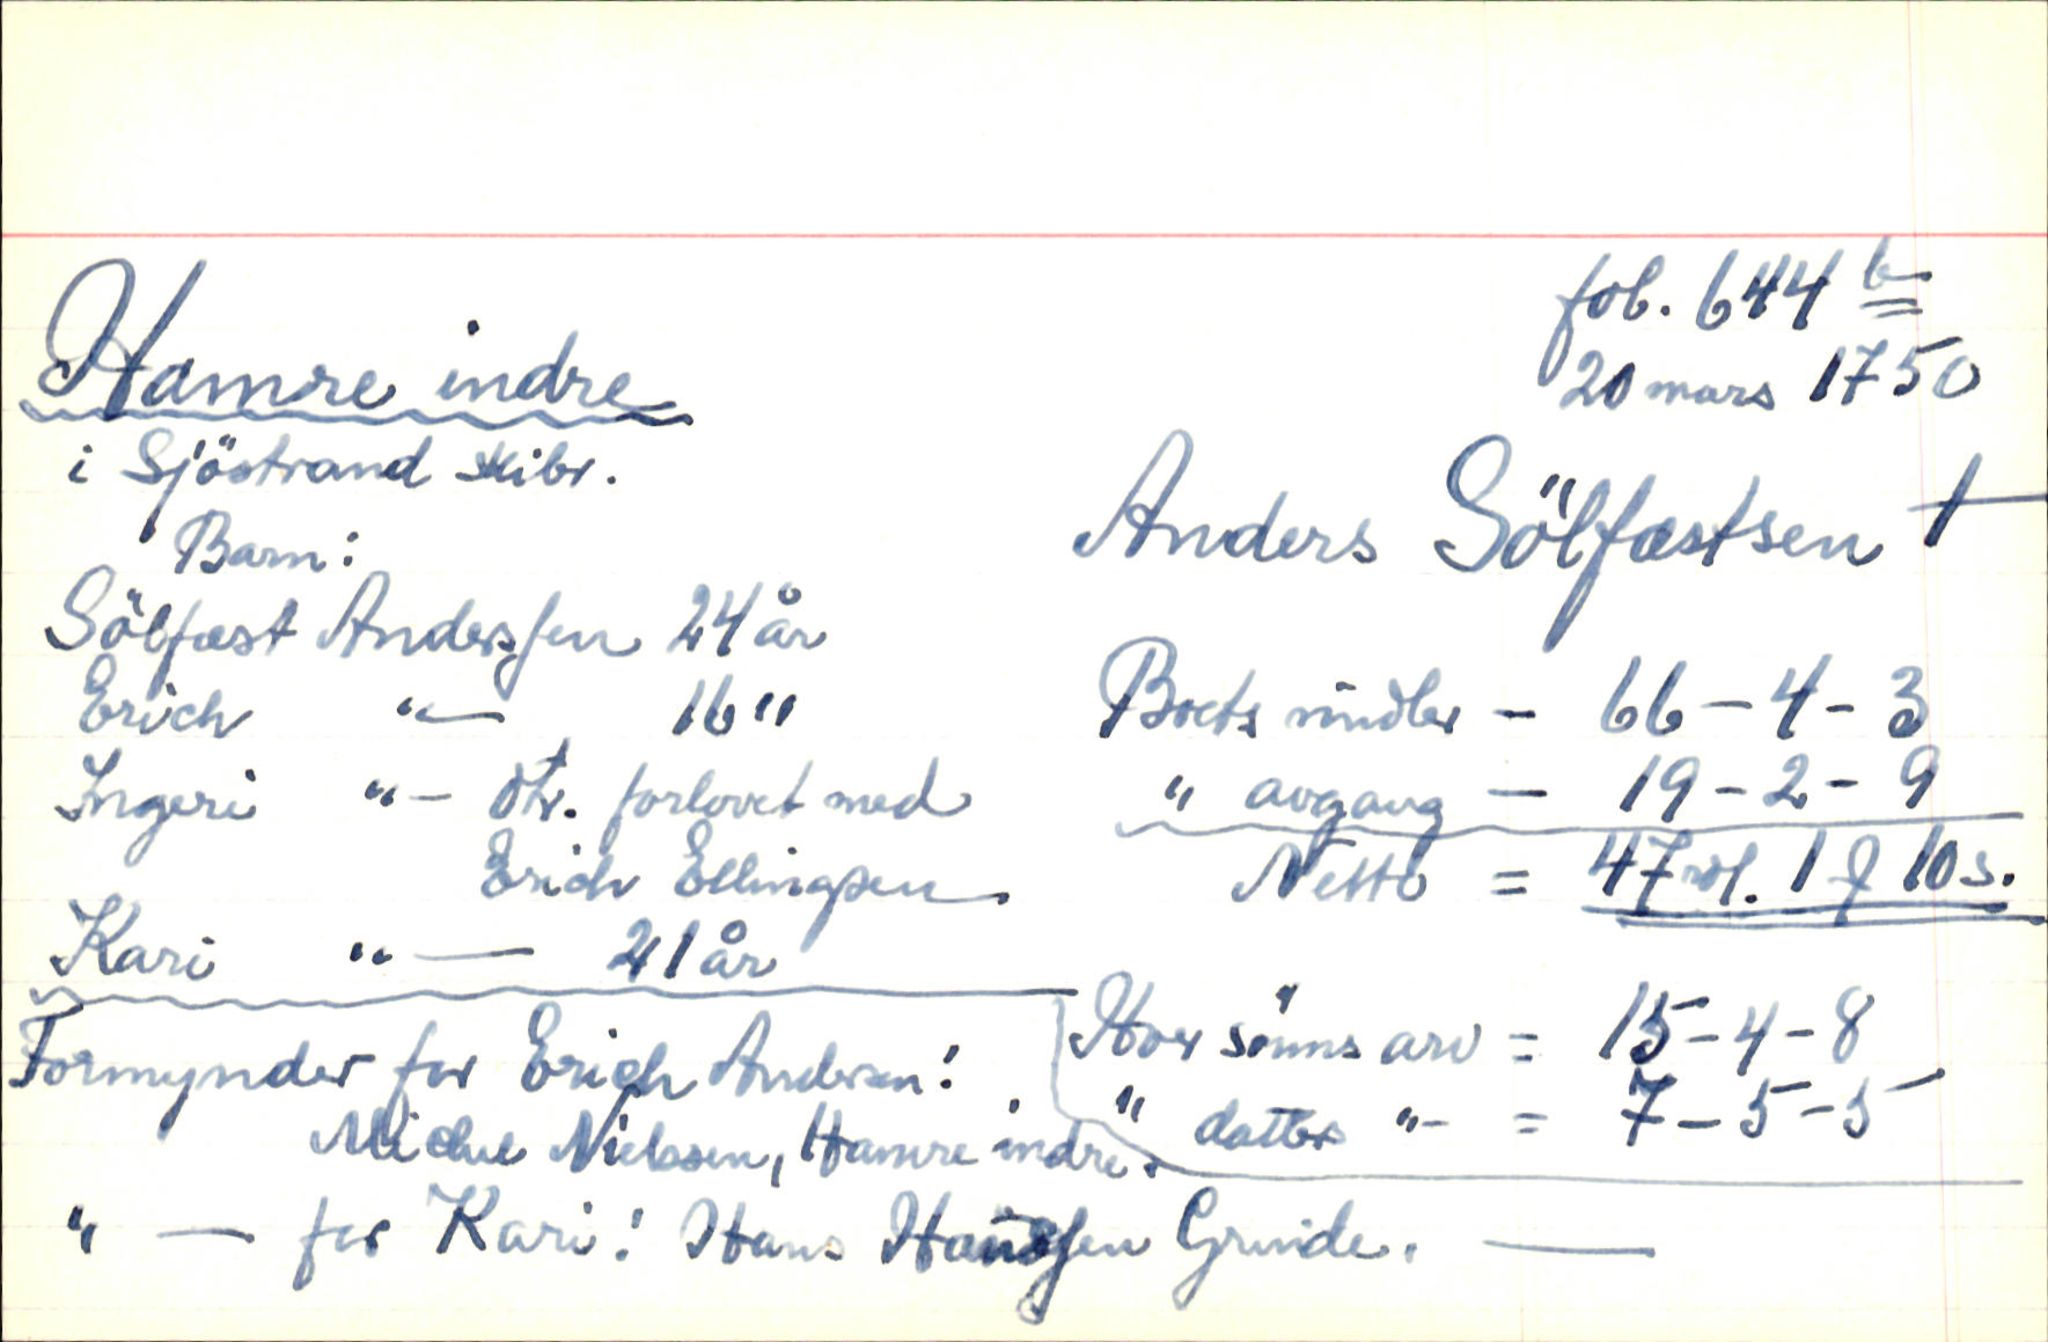 fol. 644 b
20 mars 1750
Hamre indre
i Sjöstrand skibr.
Anders Sölfæstsen †
Barn:
Sölfæst Anderssen 24 år
Erich "— 16 "
Ingeri "— dtr. forlovet med
Erich Ellingsen.
Kari "— 21 år
Boets midler — 66 — 4 - 3
" avgang — 19 - 2 - 9
Netto = 47 rdl. 1 ƒ 10 s.
Hver sönns arv = 15 - 4 - 8
" datters "- = 7 - 5 - 5
Formynder for Erich Andersen:
Michel Nielssen, Hamre indre.
" — for Kari: Hans Hanssen Grinde. —